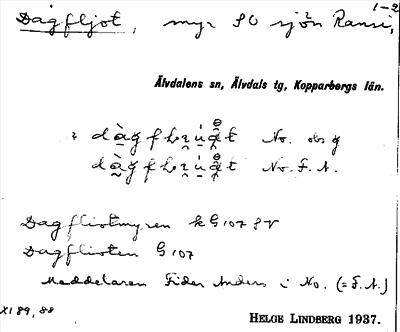 1-2
Dagfljot, myr SO sjön Ransi,
Älvdalens sn, Älvdals tg, Kopparbergs län.
No. och g
No. F. A.
Dagfliotmyren kG107 SV
Dagflioten G107
Meddelaren Fider Anders i No. (=F.A.)
XI 89, 88
HELGE LINDBERG 1937.